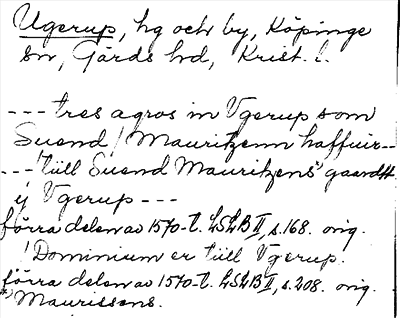 Ugerup, hg och by, Köpinge
sn, Gärds hd, Krist. l.
--- tres agros in Vgerup som
Suend / Mauritzenn haffuir--
--- / till Suend Mauritzens* gaardt
ij Vgerup ---
förra delen av 1570-t. LSLB II, s. 168. orig.
/ Dominium er till Vgerup.
förra delen av 1570-t. LSLB II, s. 208. orig.
* Maurissons.